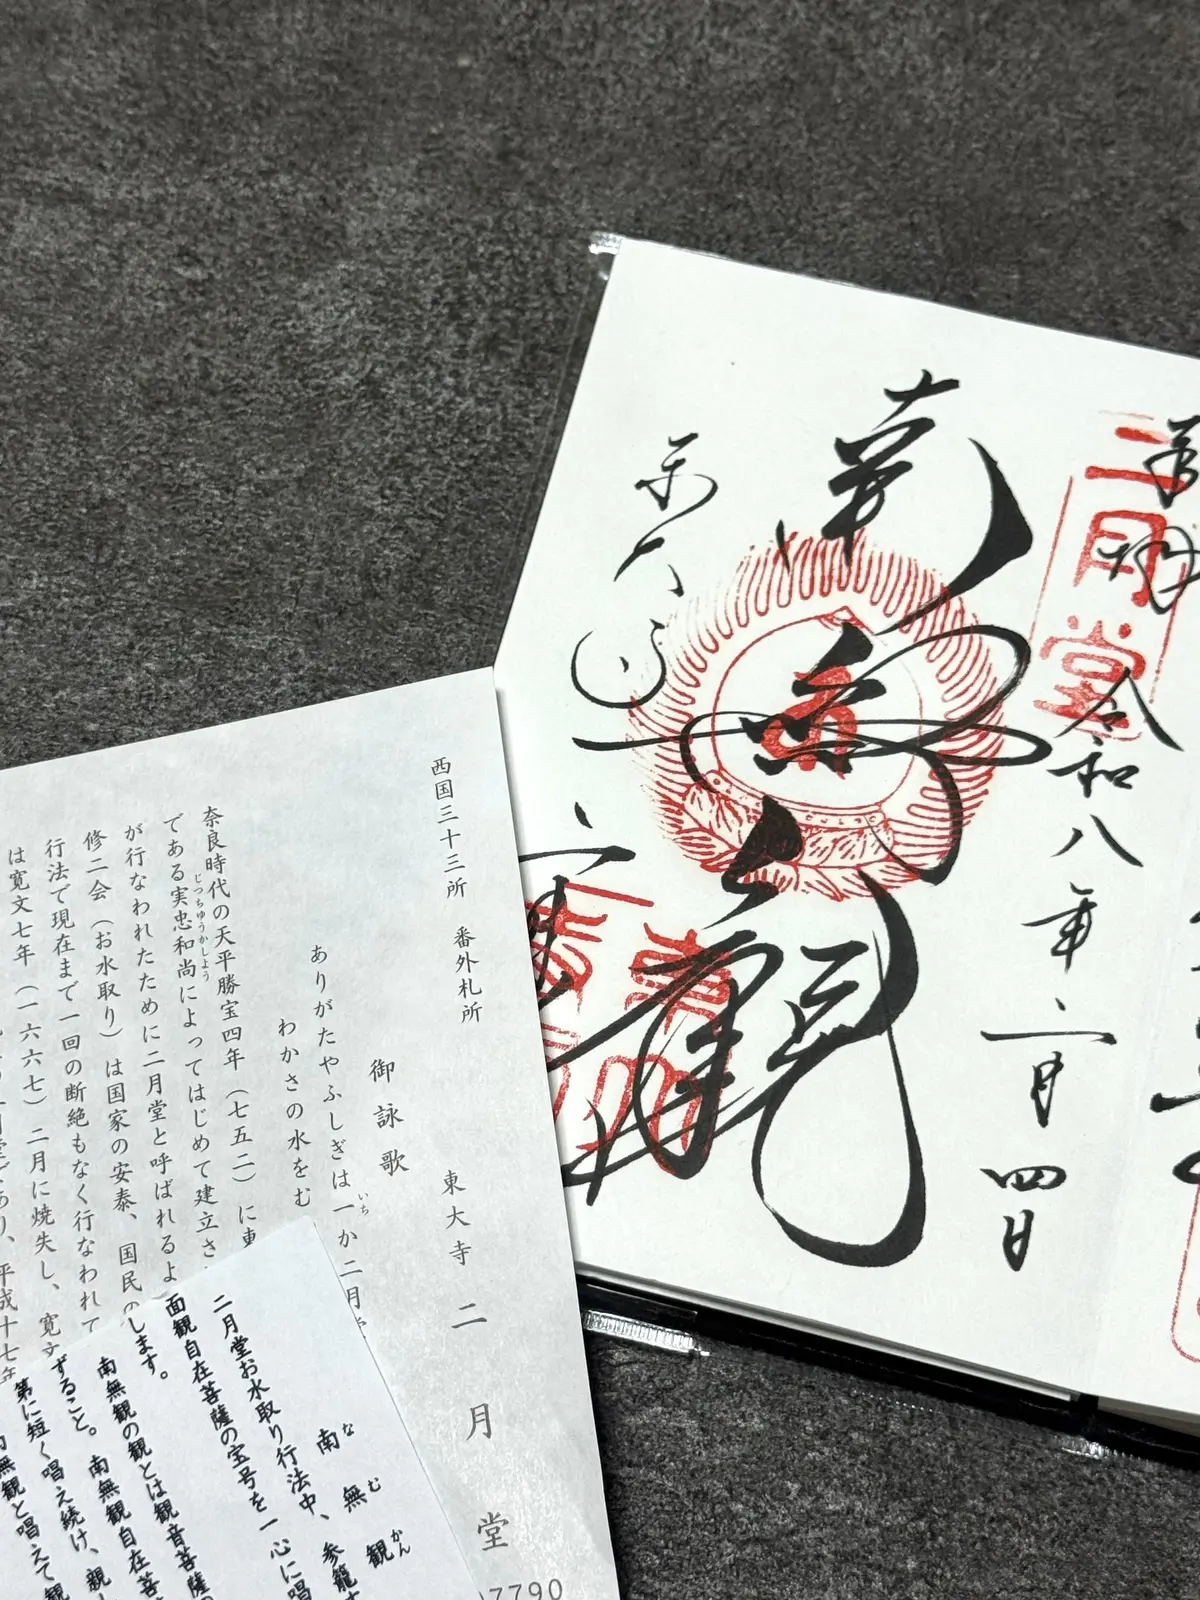 奉拝
二月堂
令和八年二月四日
南無観
東大寺
西国三十三所 番外札所
東大寺 二月堂
御詠歌
ありがたやふしぎは一か二月
いち
わかさの水をむ
奈良時代の天平勝宝四年（七五二）に東
である実忠和尚によってはじめて建立さ
じつちゆうかしよう
が行なわれたために二月堂と呼ばれるよ
修二会（お水取り）は国家の安泰、国民の
行法で現在まで一回の断絶もなく行なわれて
は寛文七年（一六六七）二月に焼失し、寛文
であり、平成十七年
南無観
なむかん
二月堂お水取り行法中、参籠
面観自在菩薩の宝号を一心に唱
します。
南無観の観とは観音菩薩の
ずること。南無観自在菩
第に短く唱え続け、親
無観と唱えて観
7790